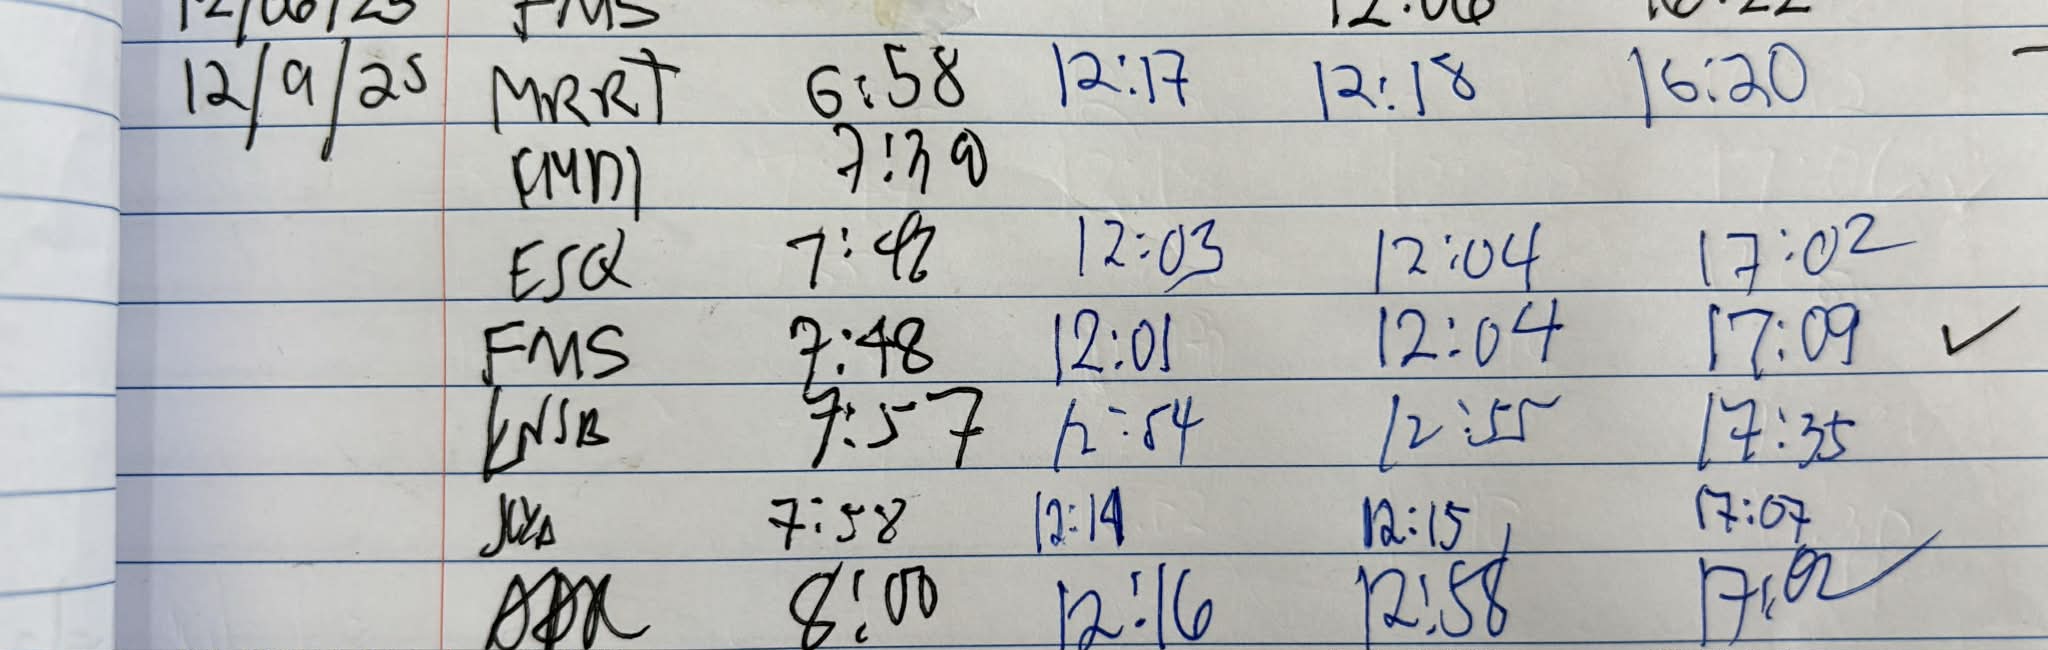 FMS 12:06 16:22
12/9/25 MRRT 6:58 12:17 12:18 16:20
7:30
ESQ 7:42 12:03 12:04 17:02
FMS 7:48 12:01 12:04 17:09 ✓
LNSB 7:57 12:54 12:55 17:35
7:58 12:14 12:15 17:07
8:00 12:16 12:58 17:02